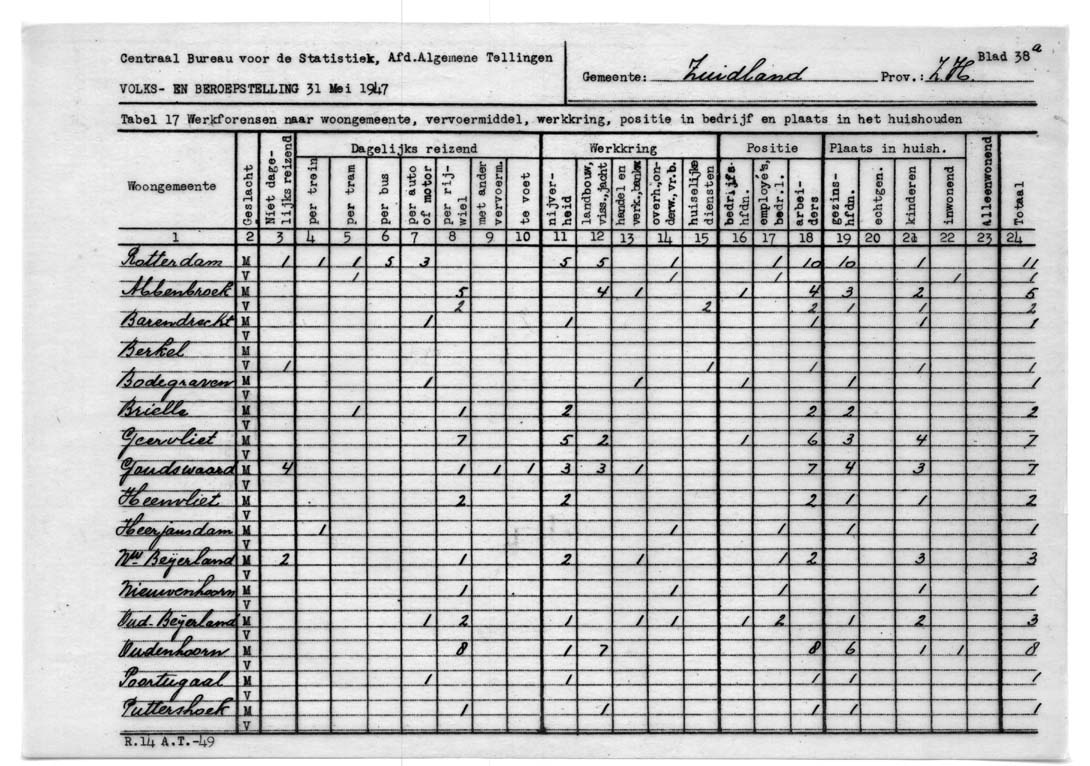 Centraal Bureau voor de Statistiek, Afd.Algemene Tellingen
VOLKS- EN BEROEPSTELLING 31 Mei 1947
Gemeente: Zuidland Prov.: Z.H. Blad 38a
Tabel 17 Werkforensen naar woongemeente, vervoermiddel, werkkring, positie in bedrijf en plaats in het huishouden
Woongemeente Geslacht Niet dage-lijks reizend Dagelijks reizend Werkkring Positie Plaats in huish. alleenwonend Totaal
per trein per tram per bus per auto of motor per rij-wiel met ander vervoerm. te voet nijver-heid landbouw, viss.,jacht handel en verk.,bankw overh.,on-derw.,vr.b. huiselijke diensten bedrijfs-hfdn. employé's, bedr.l. arbei-ders gezins-hfdn. echtgen. kinderen inwonend
1 2 3 4 5 6 7 8 9 10 11 12 13 14 15 16 17 18 19 20 21 22 23 24
Rotterdam M 1 1 1 5 3 5 5 1 1 10 10 1 11
V 1 1 1 1 1
Abbenbroek M 5 4 1 1 4 3 2 5
V 2 2 2 1 1 2
Barendrecht M 1 1 1 1 1
V
Berkel M
V 1 1 1 1 1
Bodegraven M 1 1 1 1 1
V
Brielle M 1 1 2 2 2 2
V
Geervliet M 7 5 2 1 6 3 4 7
V
Goudswaard M 4 1 1 1 3 3 1 7 4 3 7
V
Heenvliet M 2 2 2 1 1 2
V
Heerjansdam M 1 1 1 1 1
V
Nw. Beijerland M 2 1 2 1 1 2 3 3
V
Nieuwenhoorn M 1 1 1 1 1
V
Oud-Beijerland M 1 2 1 1 1 1 2 1 2 3
V
Oudenhoorn M 8 1 7 8 6 1 1 8
V
Poortugaal M 1 1 1 1 1
V
Puttershoek M 1 1 1 1 1
V
R.14 A.T.-49